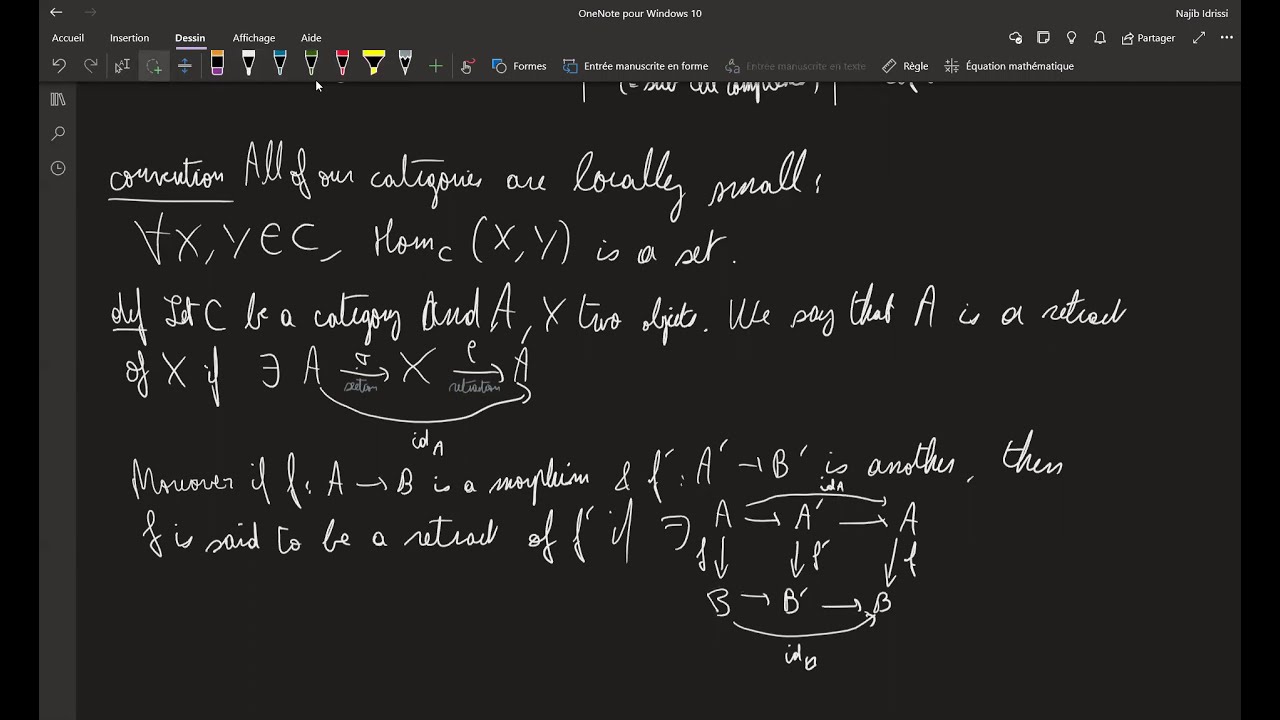 OneNote pour Windows 10
Najib Idrissi
Accueil Insertion Dessin Affichage Aide
Partager
Formes Entrée manuscrite en forme Entrée manuscrite en texte Règle Équation mathématique
convention All of our categories are locally small:
∀X, Y ∈ C, Hom_C (X, Y) is a set.
def Let C be a category and A, X two objects. We say that A is a retract
of X if ∃ A →σ X →ρ A
section retraction
id_A
Moreover if f: A → B is a morphism & f′: A′ → B′ is another, then
id_A
f is said to be a retract of f′ if ∃ A → A′ → A
f ↓ ↓ f′ ↓ f
B → B′ → B
id_B